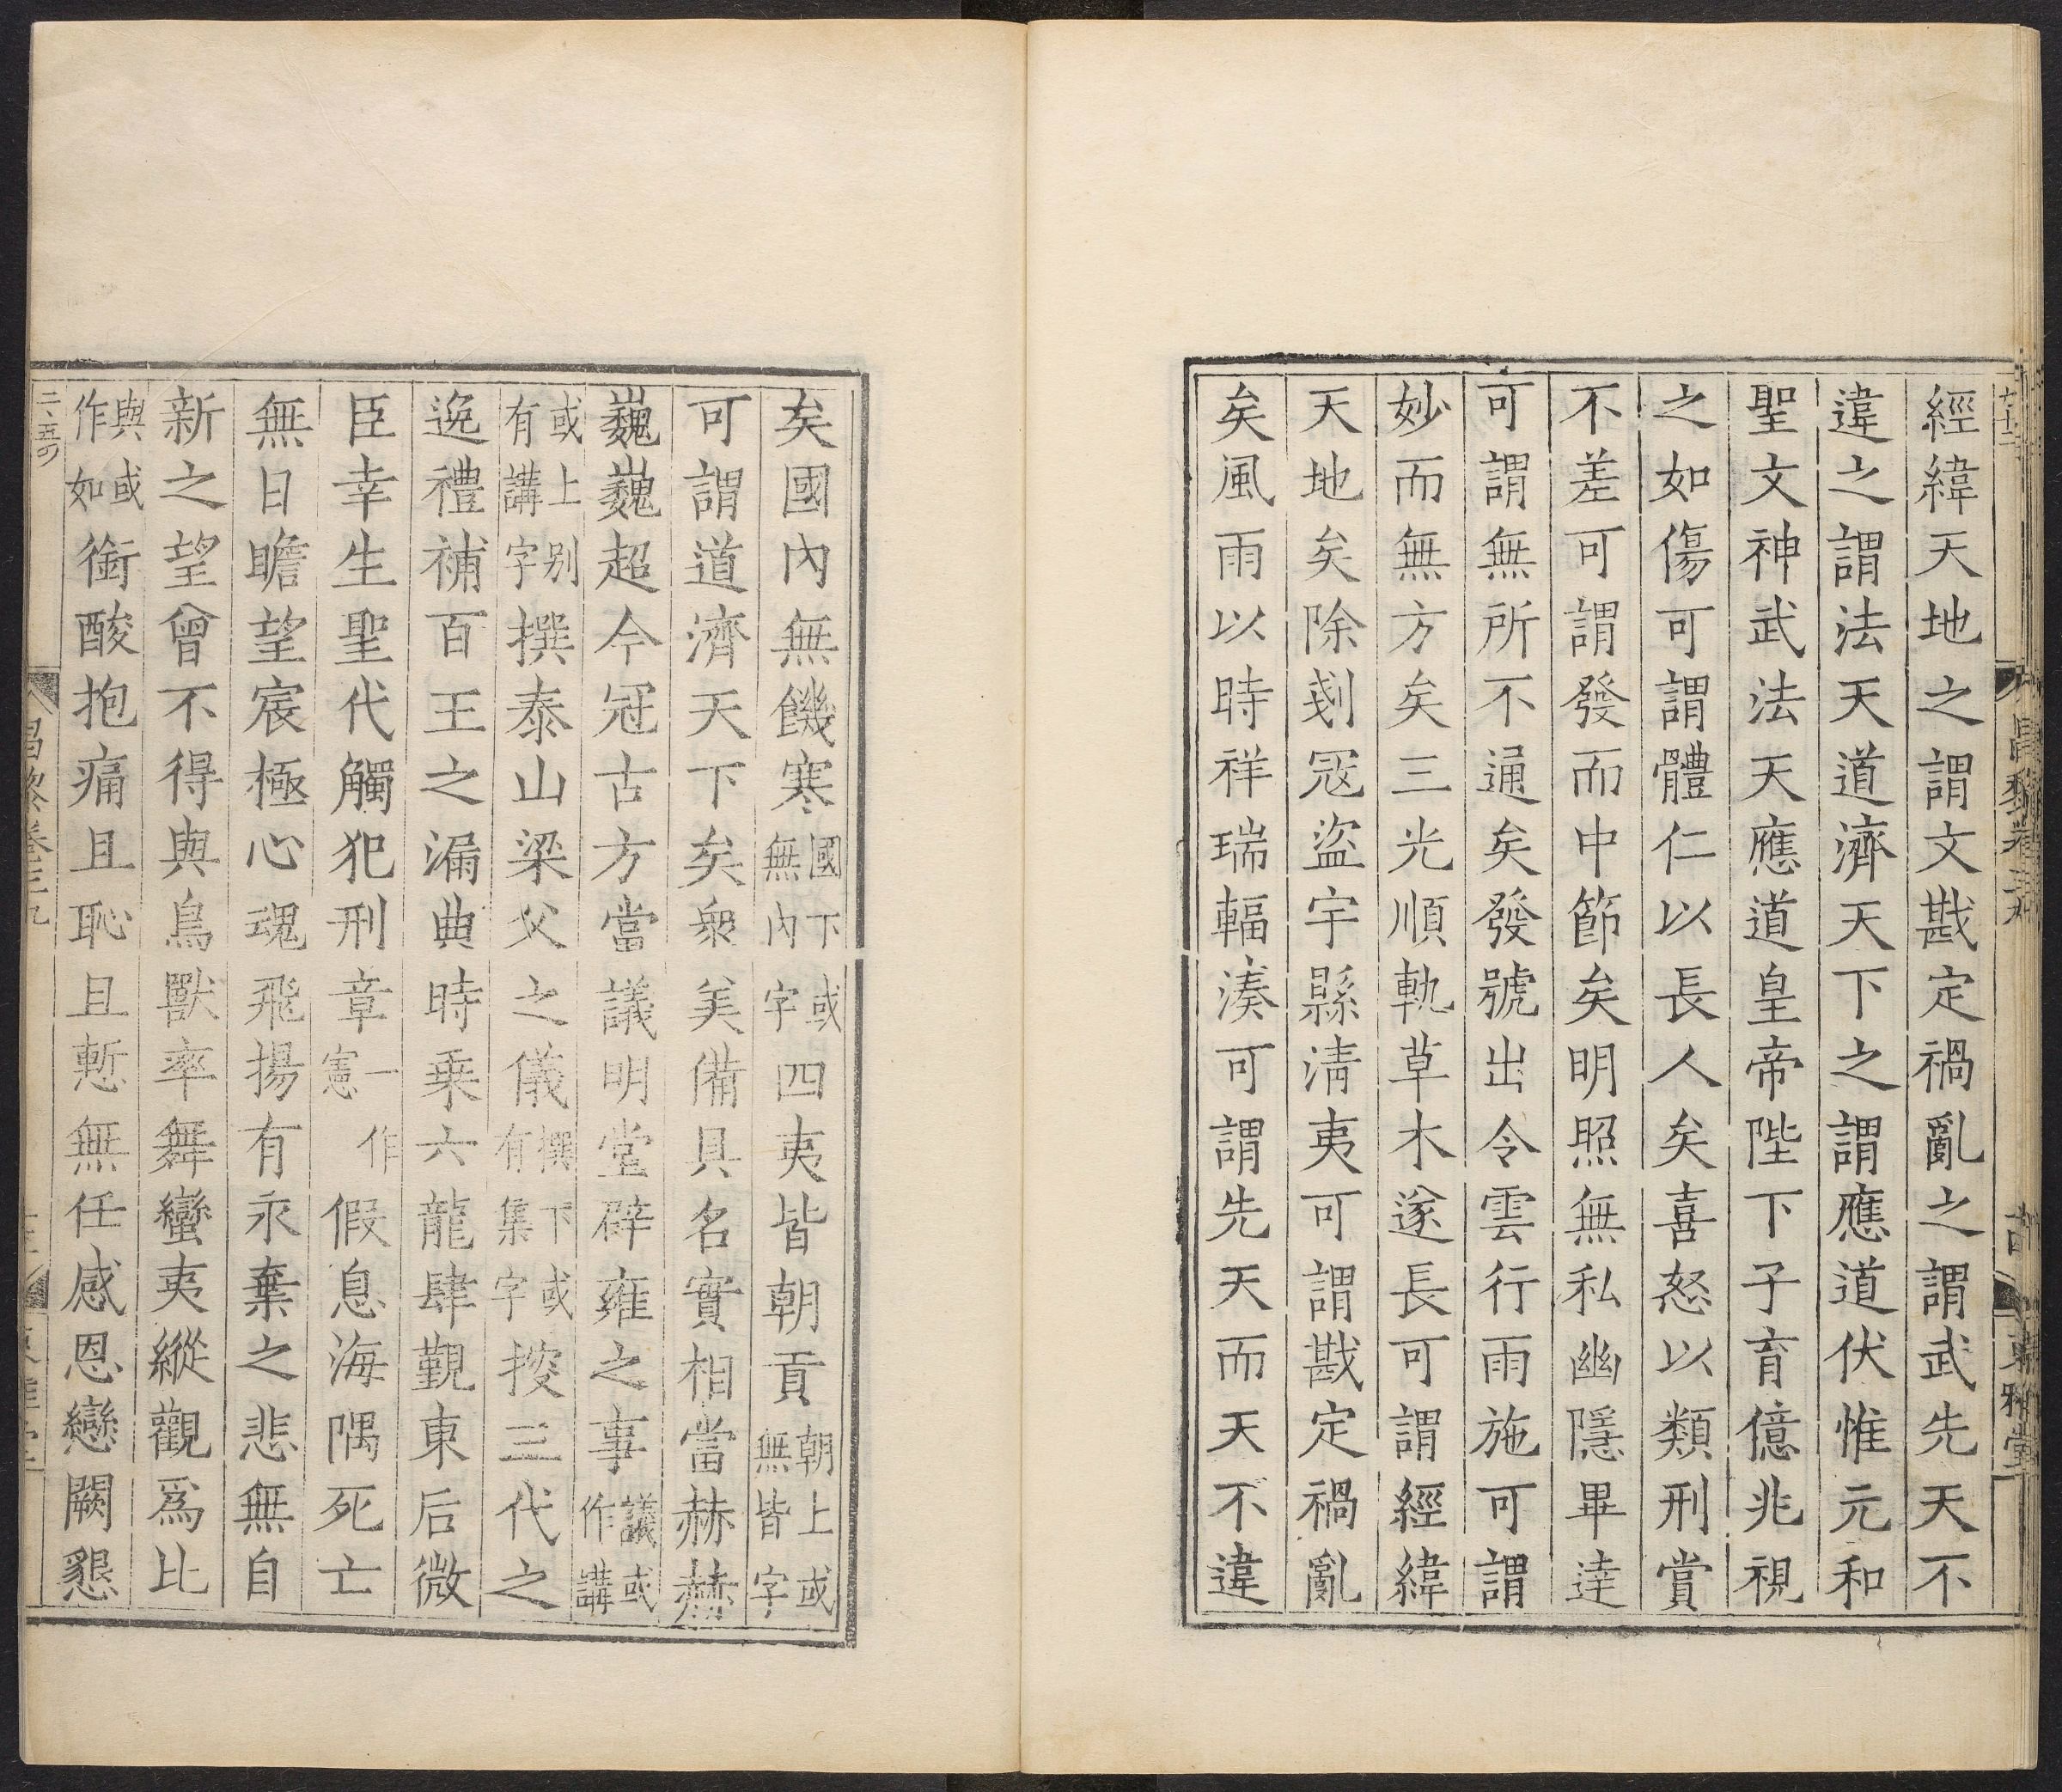 經緯天地之謂文戡定禍亂之謂武先天不
違之謂法天道濟天下之謂應道伏惟元和
聖文神武法天應道皇帝陛下子育億兆視
之如傷可謂體仁以長人矣喜怒以類刑賞
不差可謂發而中節矣明照無私幽隱畢達
可謂無所不通矣發號出令雲行雨施可謂
妙而無方矣三光順軌草木遂長可謂經緯
天地矣除剗寇盜宇縣淸夷可謂戡定禍亂
矣風雨以時祥瑞輻湊可謂先天而天不違
矣國內無饑寒國下或無內字四夷皆朝貢朝上或無皆字
可謂道濟天下矣衆美備具名實相當赫赫
巍巍超今冠古方當議明堂辟雍之事議或作講
或上别有講字撰泰山梁父之儀撰下或有集字按三代之
逸禮補百王之漏典時乘六龍肆覲東后微
臣幸生聖代觸犯刑章一作憲假息海隅死亡
無日瞻望宸極心魂飛揚有永棄之悲無自
新之望曾不得與鳥獸率舞蠻夷縱觀爲比
與或作如銜酸抱痛且恥且慙無任感恩戀闕懇